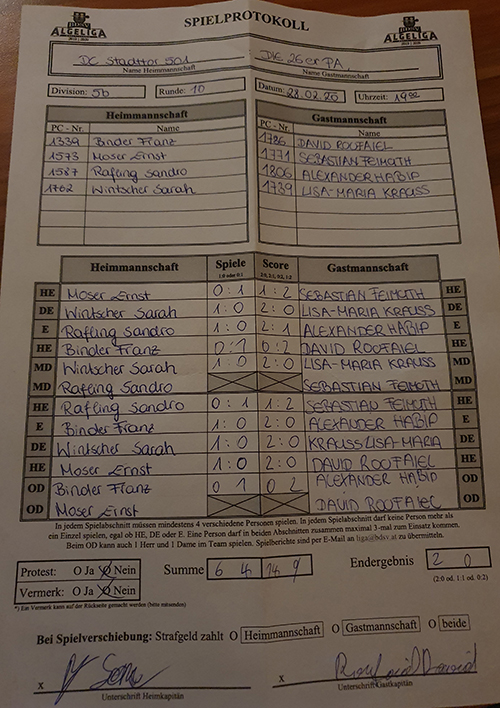 ALGELIGA
SPIELPROTOKOLL
ALGELIGA
DC Stadttor 501
DIE 26er PA
Name Heimmannschaft
Name Gastmannschaft
Division: 5b
Runde: 10
Datum: 28.02.20
Uhrzeit: 19 00
Heimmannschaft
Gastmannschaft
PC - Nr. Name
PC - Nr. Name
1339 Binder Franz
1786 DAVID ROOFAIEL
1573 Moser Ernst
1771 SEBASTIAN FEIMUTH
1587 Rafling Sandro
1806 ALEXANDER HABIP
1762 Wintscher Sarah
1739 LISA-MARIA KRAUSS
Heimmannschaft Spiele Score Gastmannschaft
1:0 oder 0:1 2:0, 2:1, 0:2, 1:2
HE Moser Ernst 0:1 1:2 SEBASTIAN FEIMUTH HE
DE Wintscher Sarah 1:0 2:0 LISA-MARIA KRAUSS DE
E Rafling Sandro 1:0 2:1 ALEXANDER HABIP E
HE Binder Franz 0:1 0:2 DAVID ROOFAIEL HE
MD Wintscher Sarah 1:0 2:0 LISA-MARIA KRAUSS MD
MD Rafling Sandro SEBASTIAN FEIMUTH MD
HE Rafling Sandro 0:1 1:2 SEBASTIAN FEIMUTH HE
E Binder Franz 1:0 2:0 ALEXANDER HABIP E
DE Wintscher Sarah 1:0 2:0 KRAUSS LISA-MARIA DE
HE Moser Ernst 1:0 2:0 DAVID ROOFAIEL HE
OD Binder Franz 0 1 0 2 ALEXANDER HABIP OD
OD Moser Ernst DAVID ROUFAIEL OD
In jedem Spielabschnitt müssen mindestens 4 verschiedene Personen spielen. In jedem Spielabschnitt darf keine Person mehr als
ein Einzel spielen, egal ob HE, DE oder E. Eine Person darf in beiden Abschnitten zusammen maximal 3-mal zum Einsatz kommen.
Beim OD kann auch 1 Herr und 1 Dame im Team spielen. Spielberichte sind per E-Mail an liga@bdsv.at zu übermitteln.
Protest: O Ja O Nein
Summe 6 4 14 9
Endergebnis 2 0
Vermerk: O Ja O Nein
(2:0 od. 1:1 od. 0:2)
*) Ein Vermerk kann auf der Rückseite gemacht werden (bitte mitsenden).
Bei Spielverschiebung: Strafgeld zahlt O Heimmannschaft O Gastmannschaft O beide
x
x
Unterschrift Heimkapitän
Unterschrift Gastkapitän